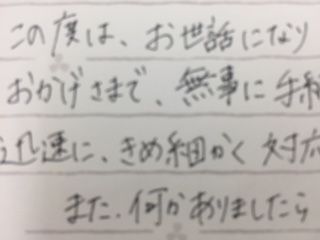 この度は、お世話になり
おかげさまで、無事に手続
迅速に、きめ細かく対応
また、何かありましたら